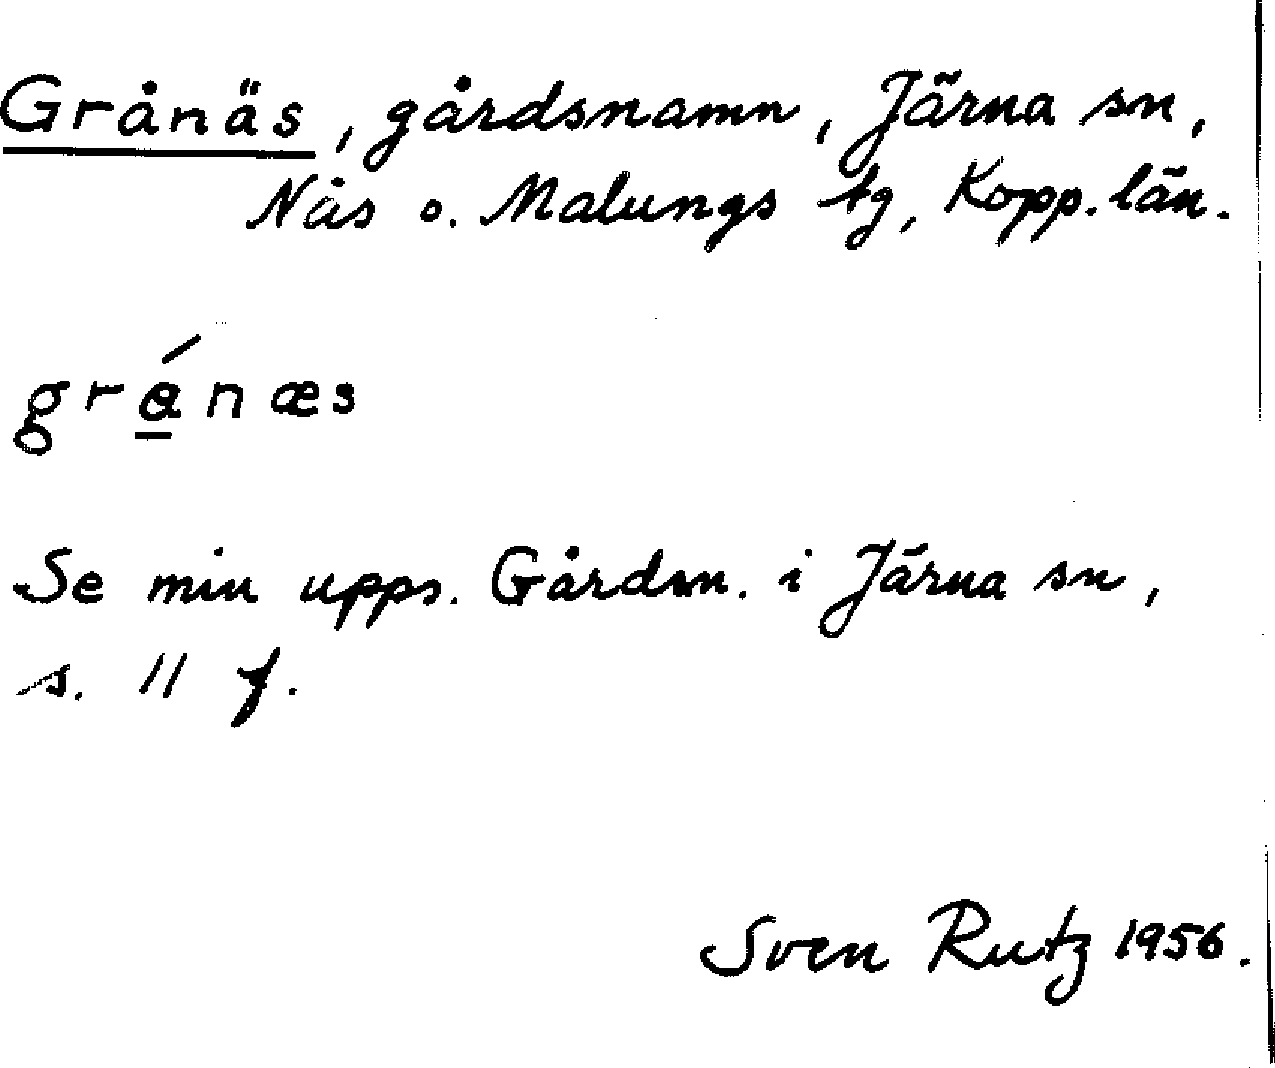 Grånäs, gårdsnamn, Järna sn,
Nås o. Malungs tg, Kopp. län.
grǻnæs
Se min upps. Gårdsn. i Järna sn,
s. 11 f.
Sven Rutz 1956.